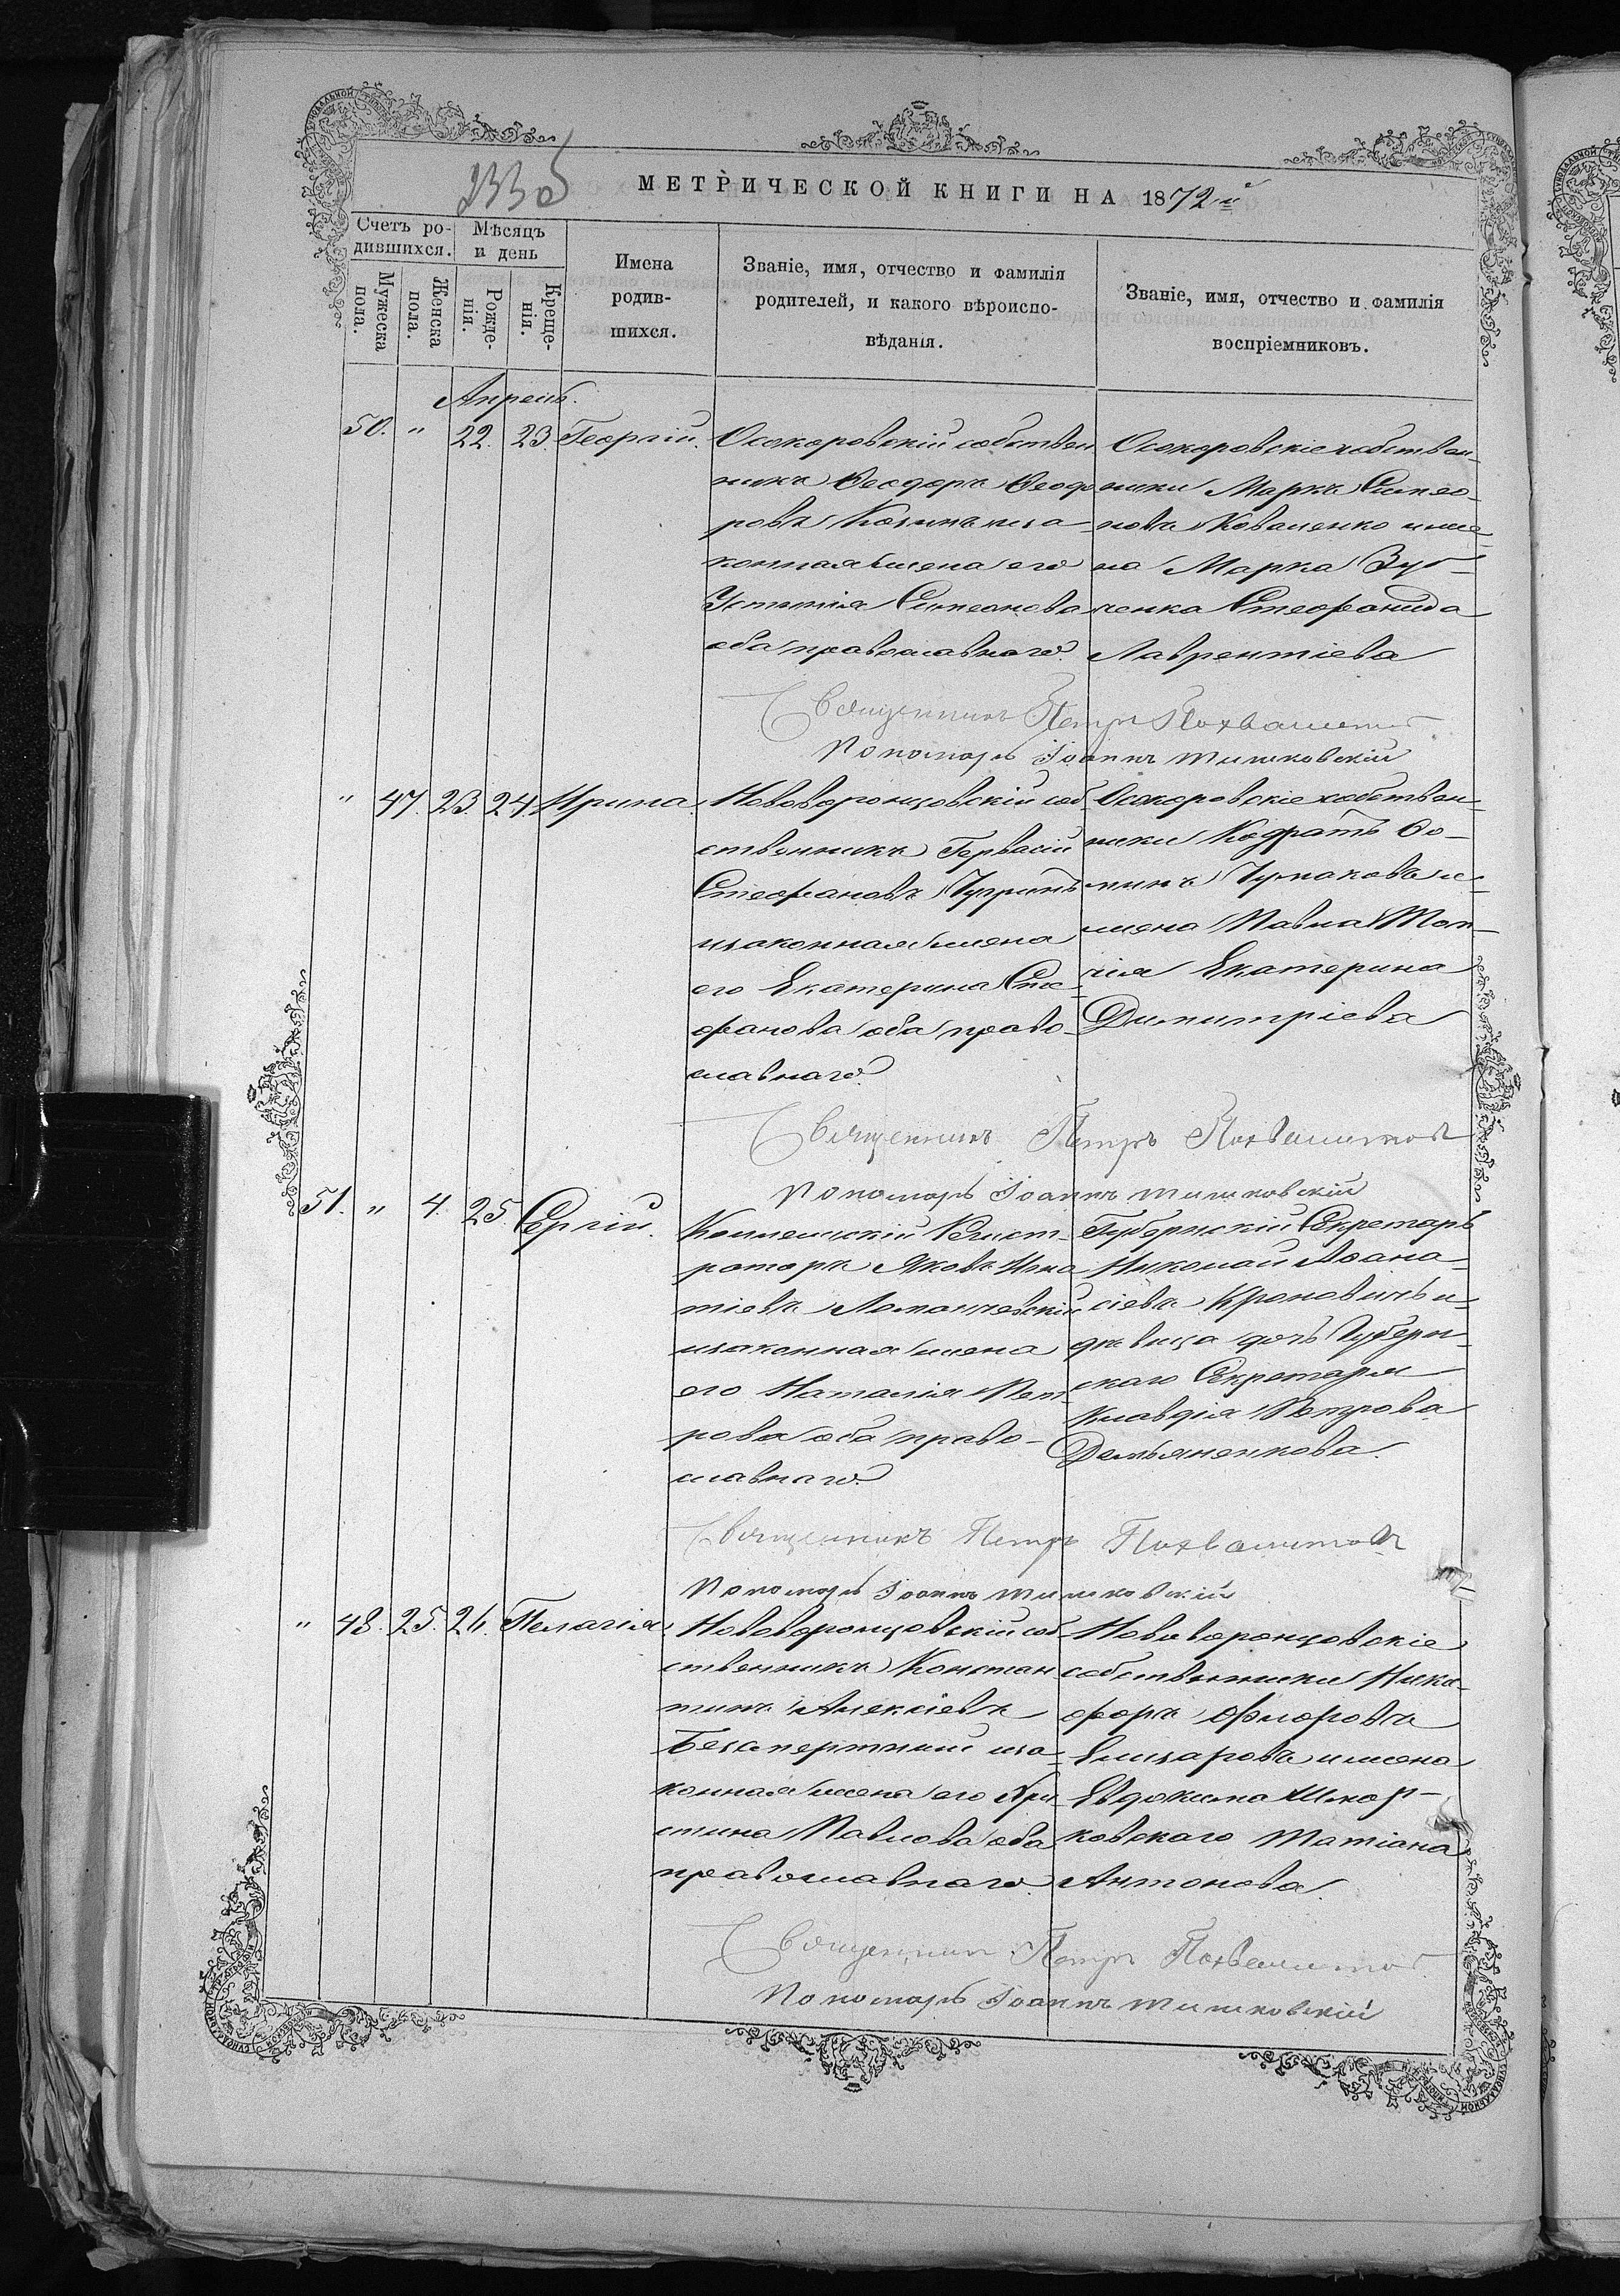 233 об
МЕТРИЧЕСКОЙ КНИГИ НА 1872 й
Счетъ ро-
дившихся.
Мѣсяцъ
и день
Мужеска
пола.
Женска
пола.
Рожде-
нія.
Креще-
нія.
Имена
родив-
шихся.
Званіе, имя, отчество и фамилія
родителей, и какого вѣроиспо-
вѣданія.
Званіе, имя, отчество и фамилія
воспріемниковъ.
Апрель.
50. " 22. 23. Георгій.
Осокоровскій собствен
никъ Ѳеодоръ Ѳеодо
ровъ и за-
конная жена его
Устинія Симеонова
оба православнаго.
Осокоровскіе собствен-
ники Маркъ Симео-
новъ Коваленко и же-
на Марка Зуб-
ченка Стефанида
Лаврентіева
Священникъ Петръ Похвалитовъ
Пономарь Іоаннъ Тишковскій
" 47. 23. 24. Ирина.
Нововоронцовскій соб-
ственникъ Гервасій
Стефановъ
и законная жена
его Екатерина Сте-
фанова оба право-
славнаго.
Осокоровскіе собствен-
ники Кодратъ Фо-
минъ Чумаковъ и
жена Павла
Екатерина
Димитріева
Священникъ Петръ Похвалитовъ
Пономарь Іоаннъ Тишковскій
51. " 4. 25. Сергій.
Коллежскій Регист-
раторъ Яковъ Игна
тіевъ Ломачевскій
и законная жена
его Наталія Пет-
рова оба право-
славнаго.
Губернскій Секретарь
Николай Аѳана-
сіевъ Кроновичъ и
дѣвица дочь Губерн-
скаго Секретаря
Клавдія Петрова
Демьяненкова.
Священникъ Петръ Похвалитовъ
Пономарь Іоаннъ Тишковскій
" 48. 25. 26. Пелагія
Нововоронцовскій соб-
ственникъ Констан
тинъ Алексіевъ
Безсмертный и за-
конная жена его Хри-
стина Павлова оба
православнаго.
Нововоронцовскіе
собственники Ники-
форъ Флоровъ
Елизаровъ и жена
Евдокима
ковскаго Татіана
Антонова.
Священникъ Петръ Похвалитовъ
Пономарь Іоаннъ Тишковскій